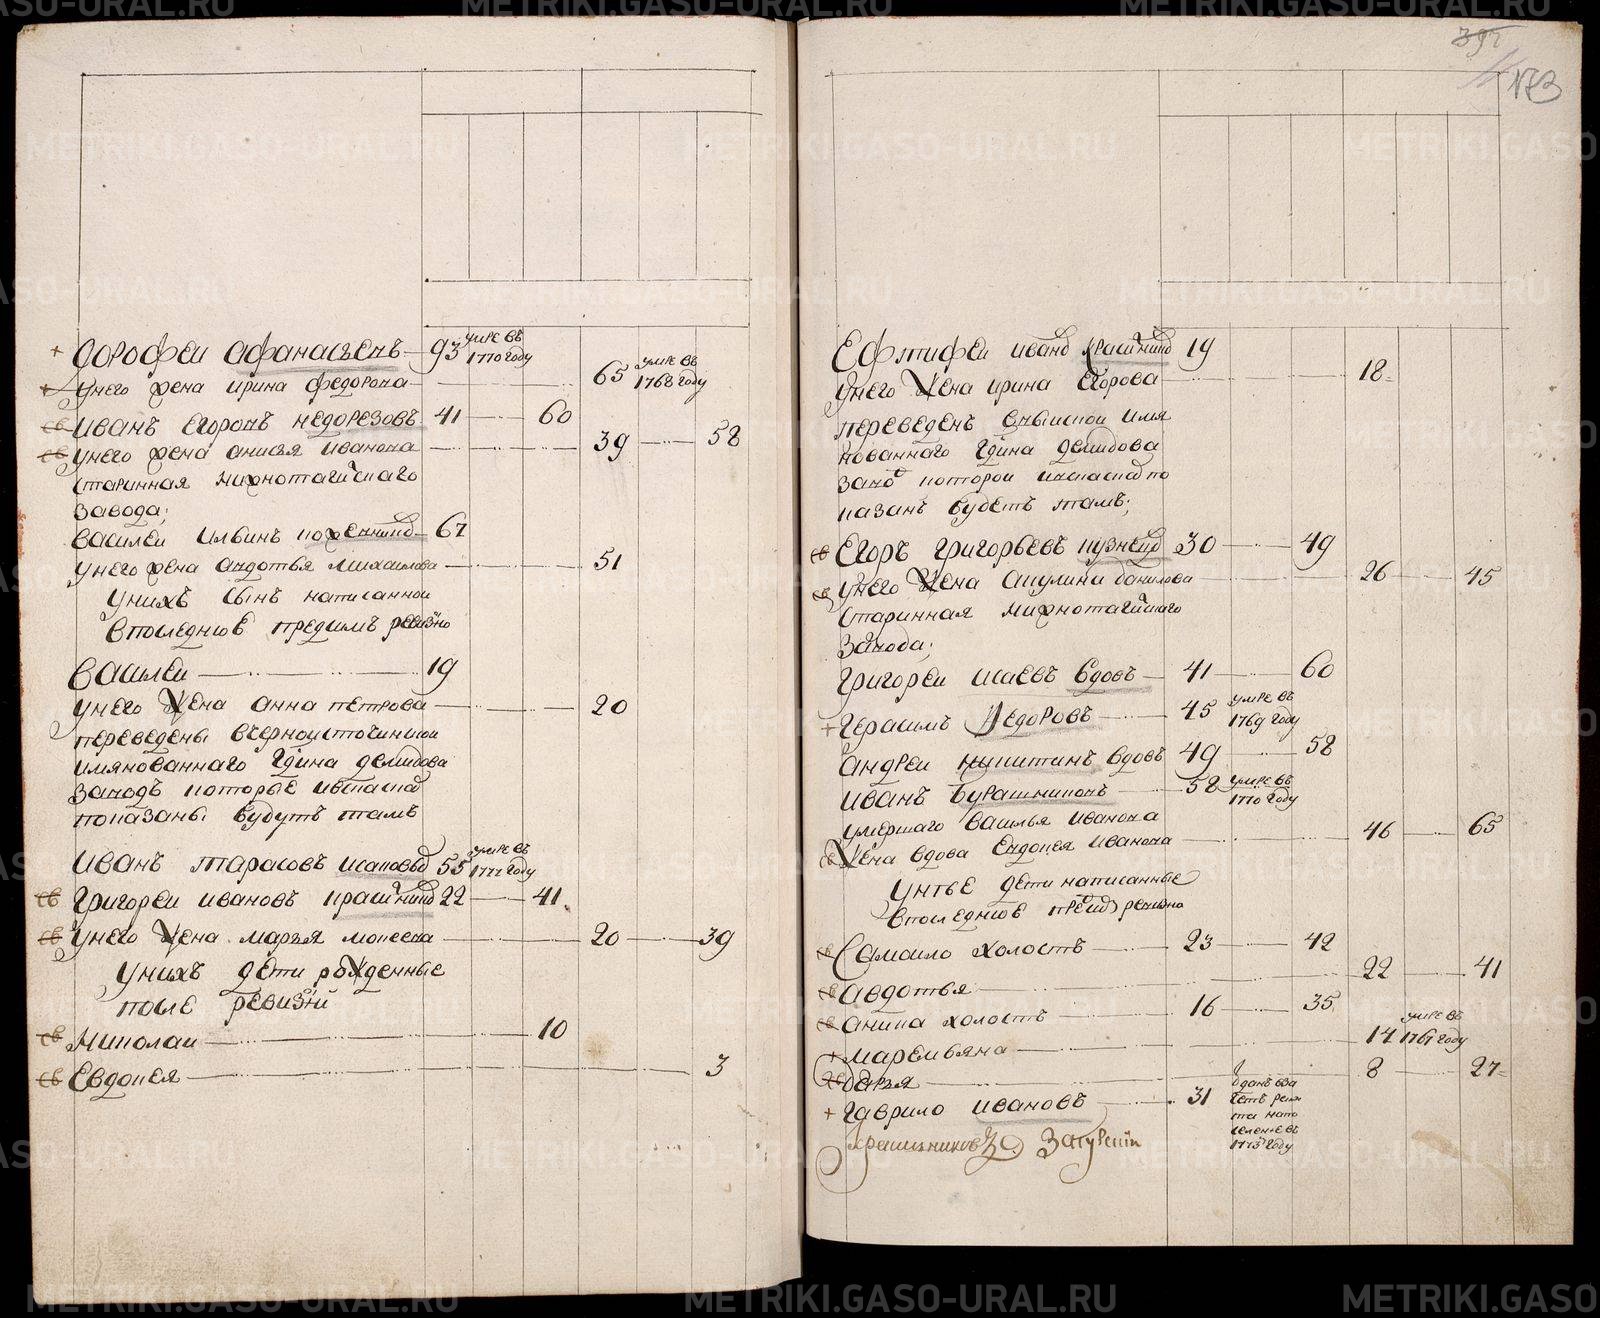 дорофеи афанасьевъ 93 умре въ 1770 году
унего жена ирина федорова 65 умре въ 1768 году
иванъ егоровъ недорезовъ 41 60
унего жена анисья иванова 39 58
старинная нижнотагилскаго
завода;
василеи ильинъ 67
унего жена авдотья михаилова 51
унихъ сынъ написаннои
впоследнюю предимъ ревизию
василеи 19
унего жена анна петрова 20
переведены вчерноисточинскои
имянованнаго гдина демидова
заводъ которые
показаны будутъ тамъ
иванъ тарасовъ 55 умре въ 1777 году
григореи ивановъ 22 41
унего жена марья моисеева 20 39
унихъ дети рожденные
после ревизии
николаи 10
евдокея 3
392
173
Ефтифеи ивановъ 19
унего жена ирина егорова 18
переведенъ имя
нованнаго гдина демидова
заводъ которои по
казанъ будетъ тамъ;
егоръ григорьевъ 30 49
унего жена акулина данилова 26 45
старинная нижнотагилскаго
завода;
григореи исаевъ вдовъ 41 60
герасимъ федоровъ 45 умре въ 1769 году
андреи никитинъ вдовъ 49 58
иванъ бурашниковъ 58 умре въ 1770 году
умершаго василья иванова
жена вдова евдокея иванова 46 65
унее дети написанные
впоследнюю предъ ревизию
самоило холостъ 23 42
авдотья 22 41
аника холостъ 16 35
маремьяна 14 умре въ 1767 году
дарья 8 27
гаврило ивановъ 31 въ 1773 году